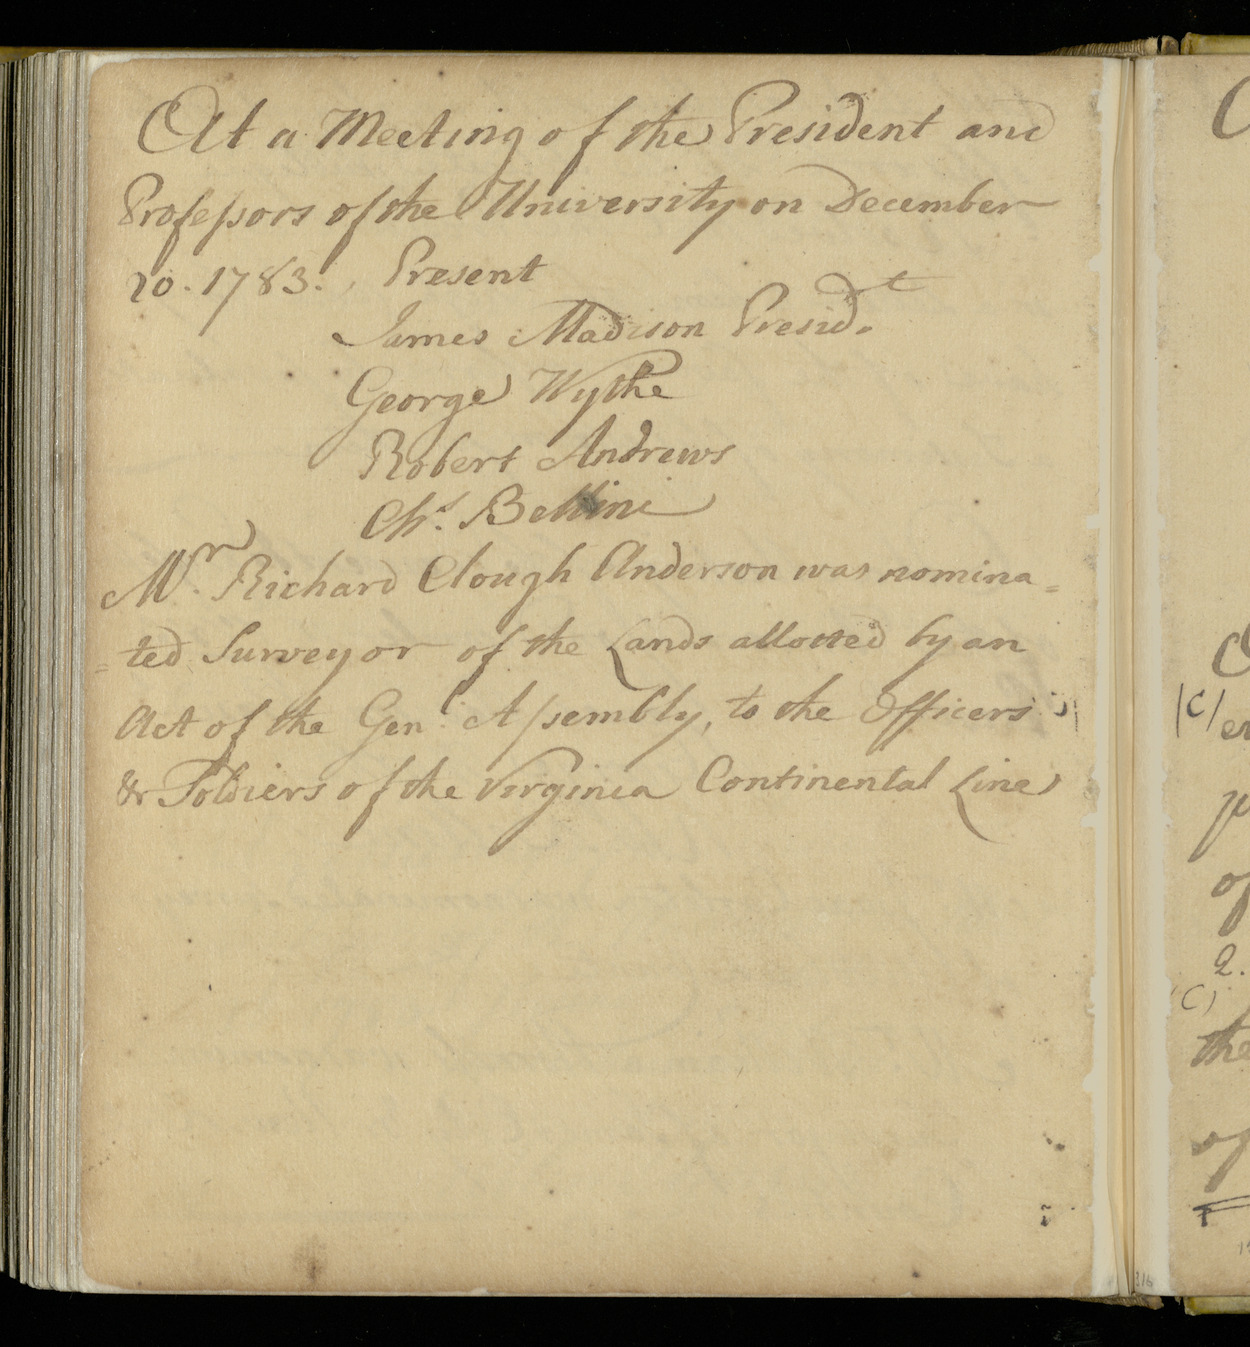 At a Meeting of the President and
Professors of the University on December
20. 1783. , Present
James Madison Presid.t
George Wythe
Robert Andrews
Chs. Bellini
Mr. Richard Clough Anderson was nomina=
=ted Surveyor of the Lands allotted by an
Act of the Genl. Assembly, to the Officers
& Soldiers of the Virginia Continental Line
(C)
er
of
2.
C)
the
of
316